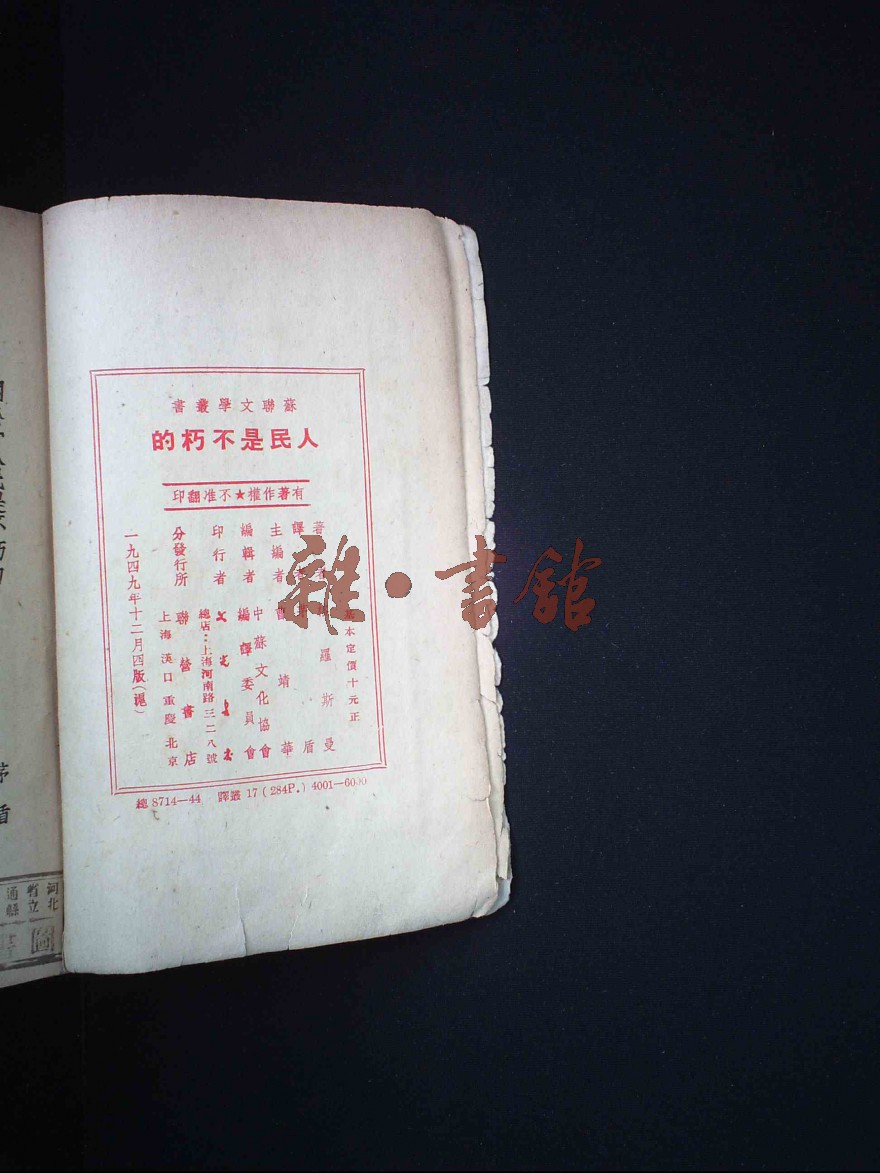 蘇聯文學叢書
人民是不朽的
有著作權★不准翻印
本定價十元正
著者 羅斯曼
譯者 茅盾
主編者 曹靖華
編輯者 中蘇文化協會
編譯委員會
印行者 文光書店
總店：上海河南路三二八號
分發行所 聯營書店
上海 漢口 重慶 北京
一九四九年十二月四版（滬）
總 8714—44 譯叢 17 (284P.) 4001—6000
雜·書館
茅盾
河北
省立
通縣
圖